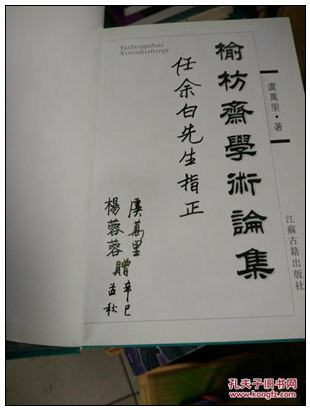 Yufangzhai
Xueshulunji
榆枋齋學術論集
虞萬里·著
江蘇古籍出版社
任余白先生指正
虞萬里
楊蓉蓉贈
辛巳
孟秋
孔夫子旧书网